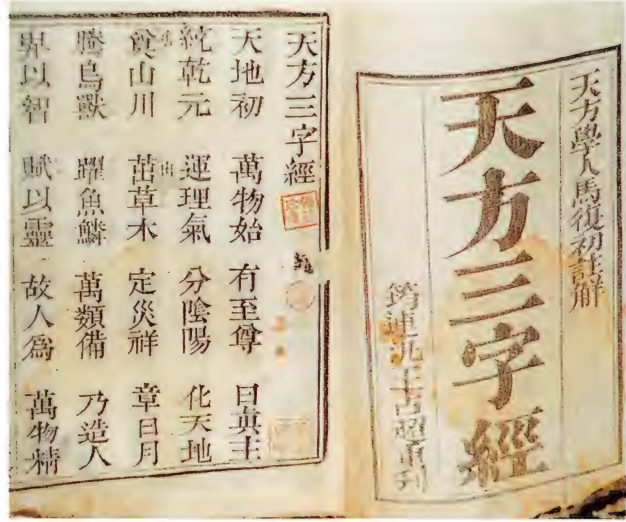 天方學人馬復初註解
天方三字經
筠連 重刊
天方三字經
天地初 萬物始 有至尊 曰眞主
統乾元 運理氣 分陰陽 化天地
奠山川 茁草木 定災祥 章日月
騰鳥獸 躍魚鱗 萬類備 乃造人
畀以智 賦以靈 故人爲 萬物精